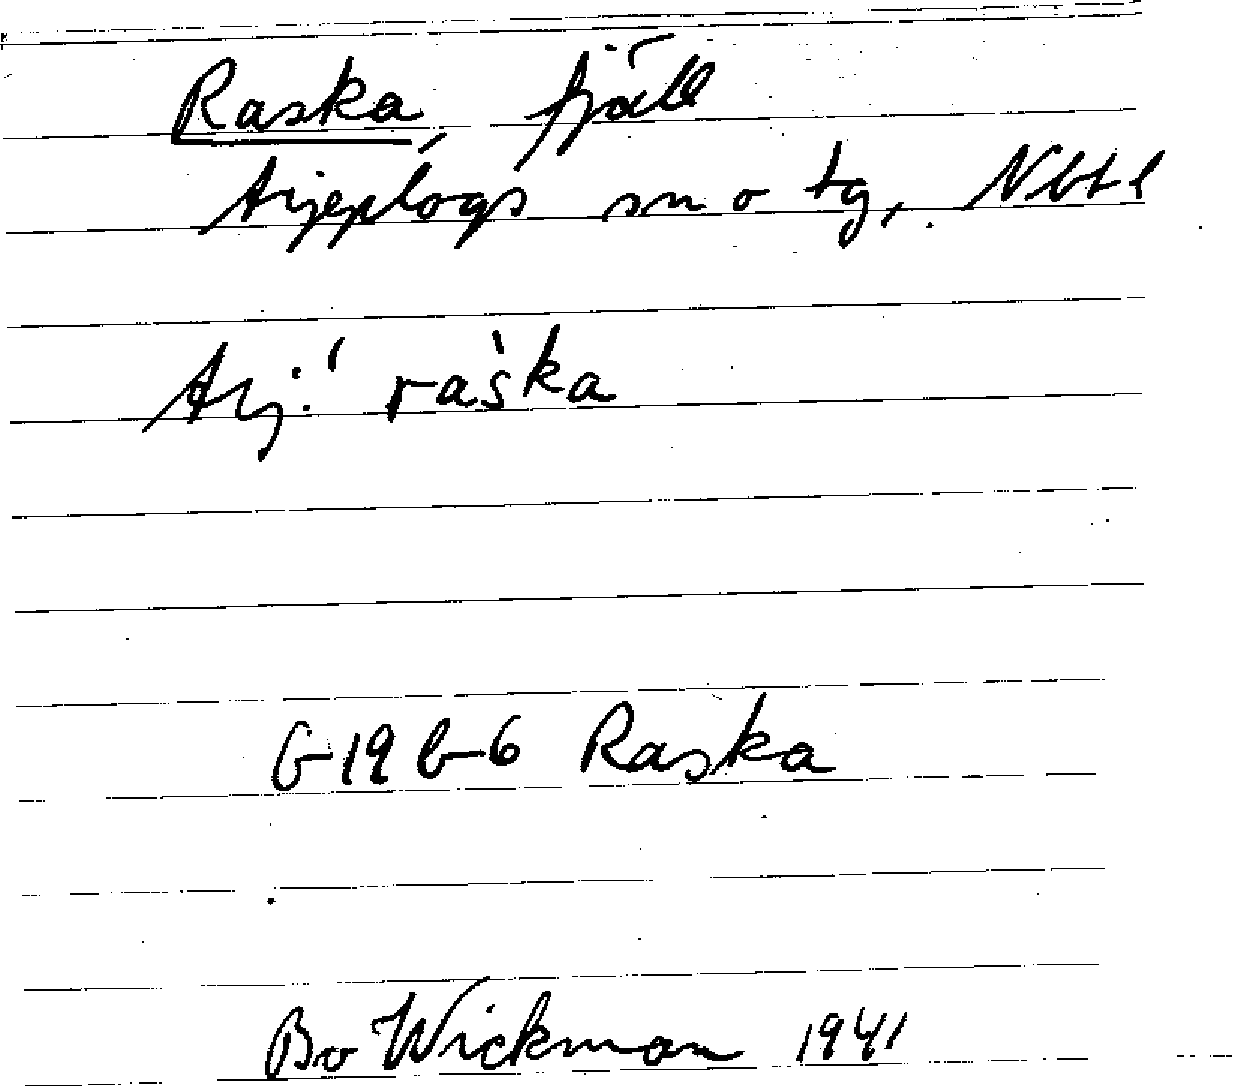 Raska fjäll
Arjeplogs sn o tg, Nbtl
Arj.' raška
G-19 b-6 Raska
Bo Wickman 1941